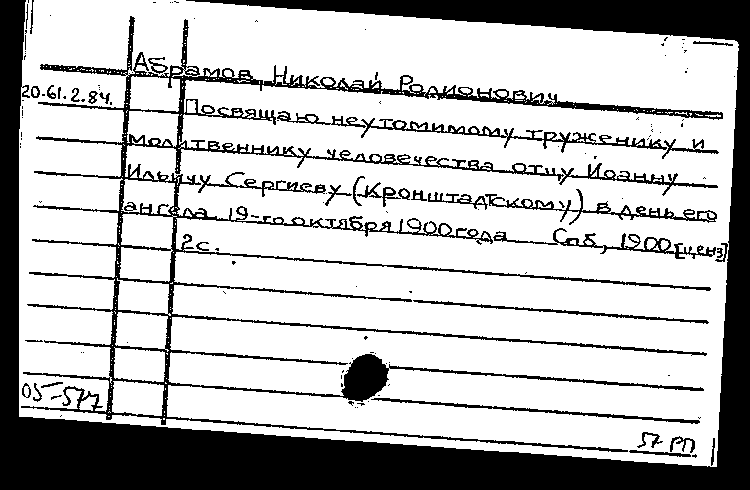 Абрамов, Николай Родионович
20-61.2.84. Посвящаю неутомимому труженику и
молитвеннику человечества отцу Иоанну
Ильичу Сергиеву (Кронштадтскому) в день его
ангела 19-го октября 1900 года Спб, 1900 [ценз]
2 с.
05-577
57 РП